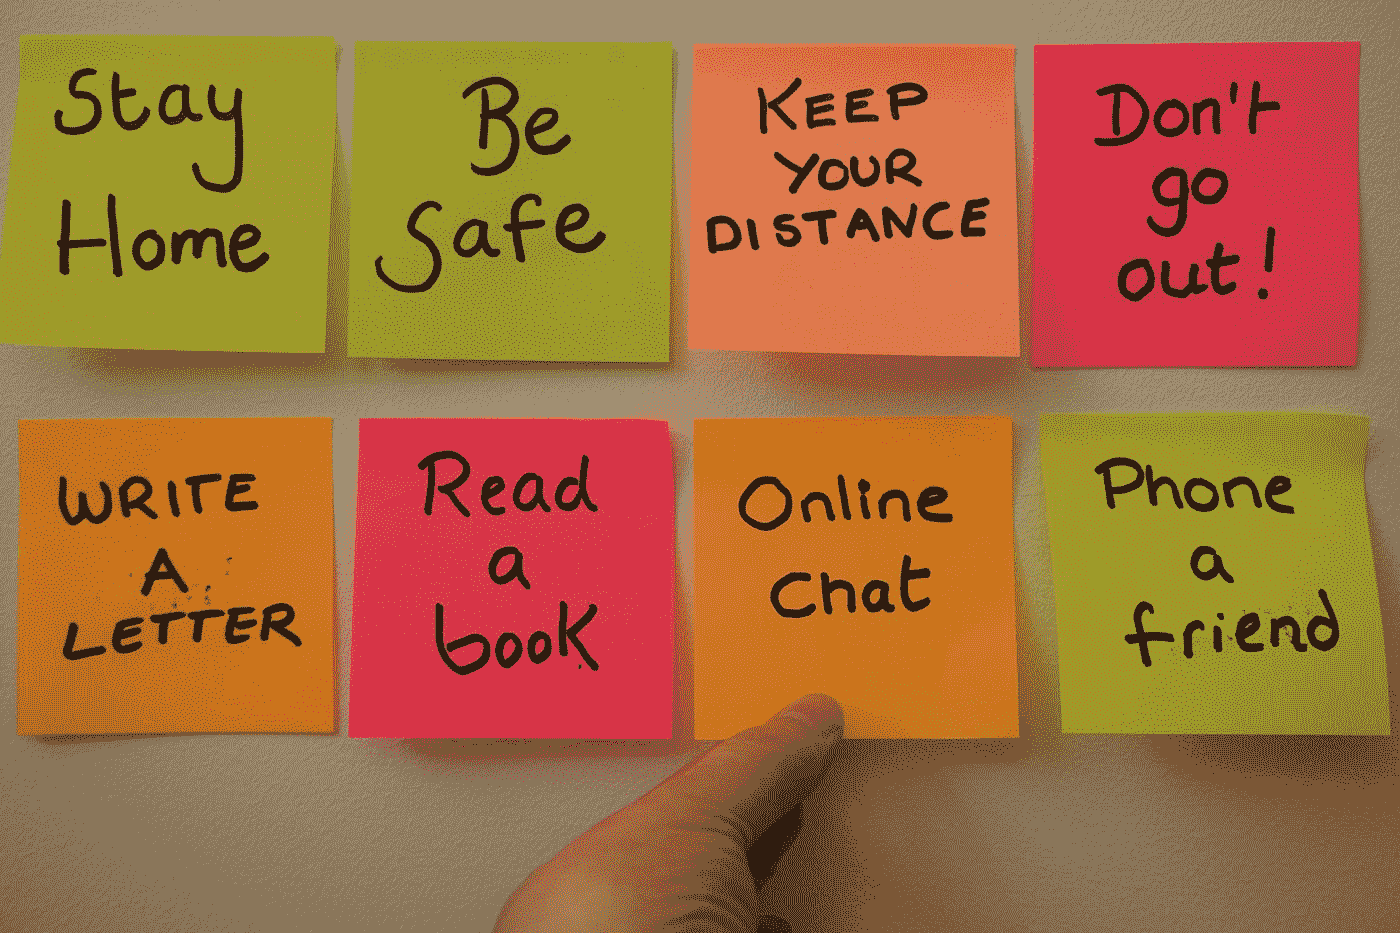 Stay
Home
Be
Safe
KEEP
YOUR
DISTANCE
Don't
go
out!
WRITE
A
LETTER
Read
a
book
Online
chat
Phone
a
friend